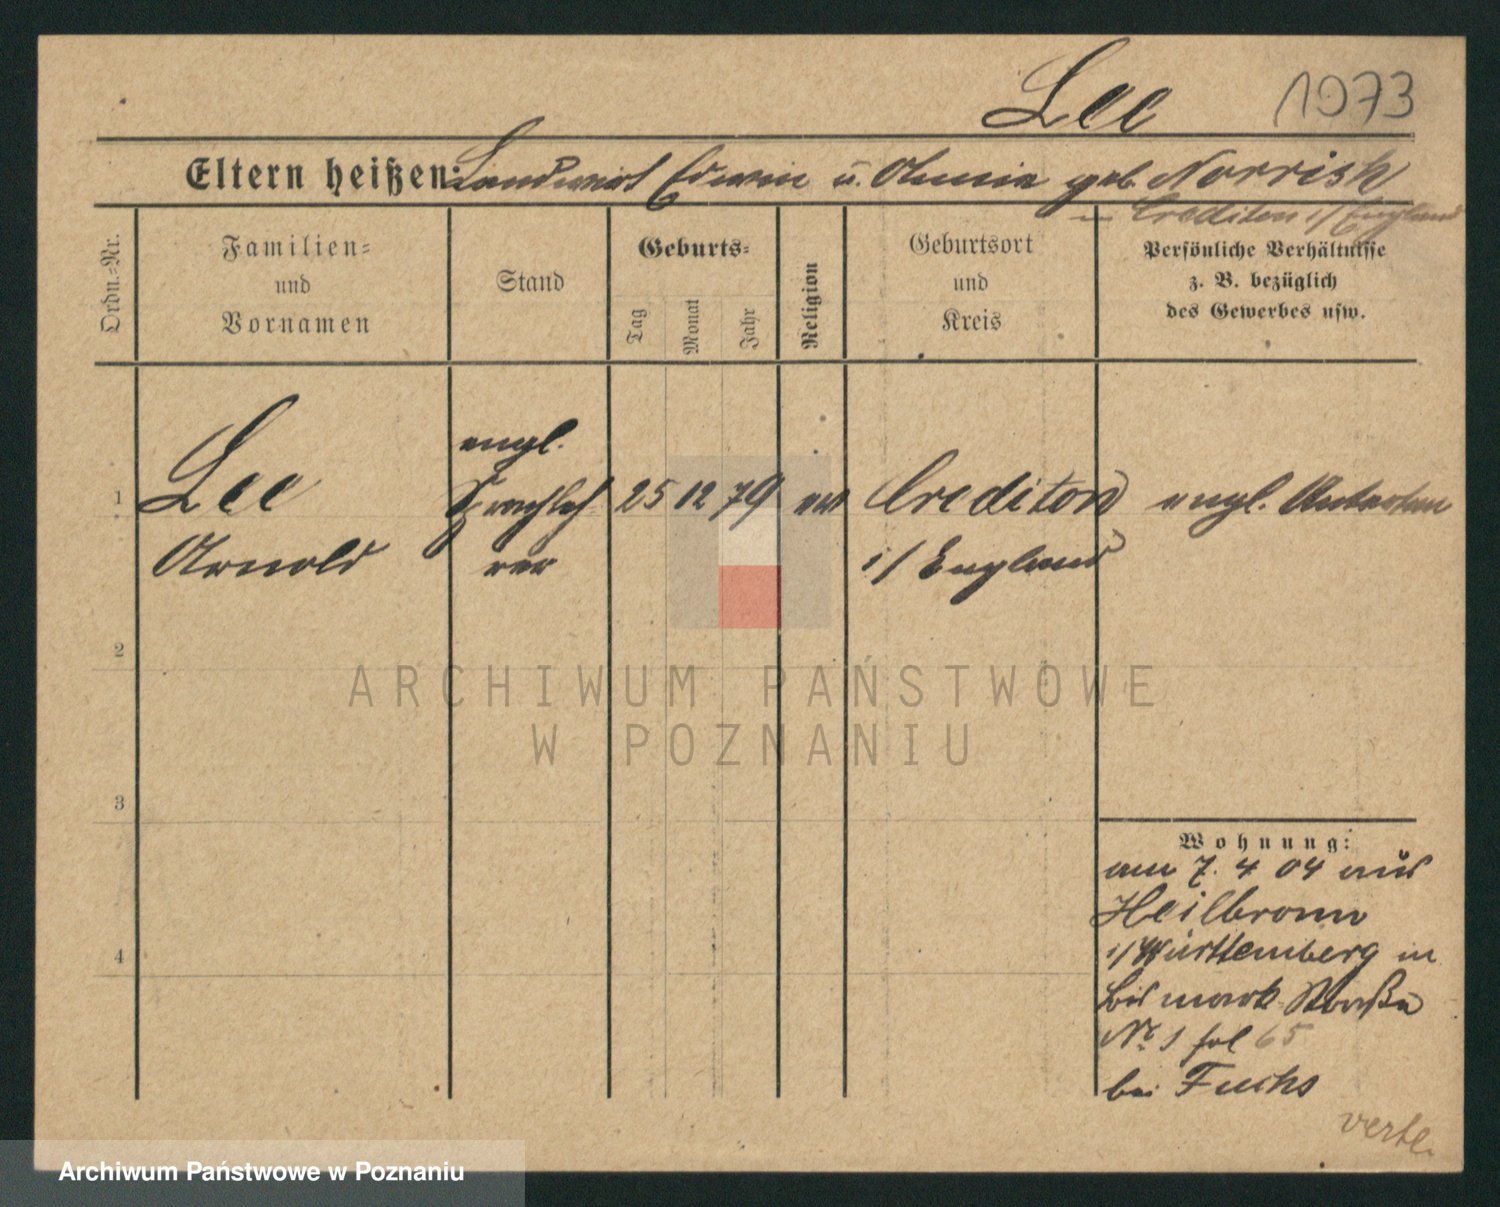 Lee 1973
Eltern heißen: Landwirt Edwin u. Annie geb. Norrish
in Crediton i/ England
Ordn.-Nr.
Familien-
und
Vornamen
Stand
Geburts-
Tag
Monat
Jahr
Religion
Geburtsort
und
Kreis
Persönliche Verhältnisse
z. B. bezüglich
des Gewerbes usw.
1
Lee
Arnold
engl.
Sprachleh
rer
25 12 79
Crediton
i/ England
engl. Untertan
2
3
4
Wohnung:
am 7. 4 04 aus
Heilbronn
i/ Württemberg in
Bismark Straße
No 1 fol 65
bei Fuchs
verte.
ARCHIWUM PAŃSTWOWE
W POZNANIU
Archiwum Państwowe w Poznaniu